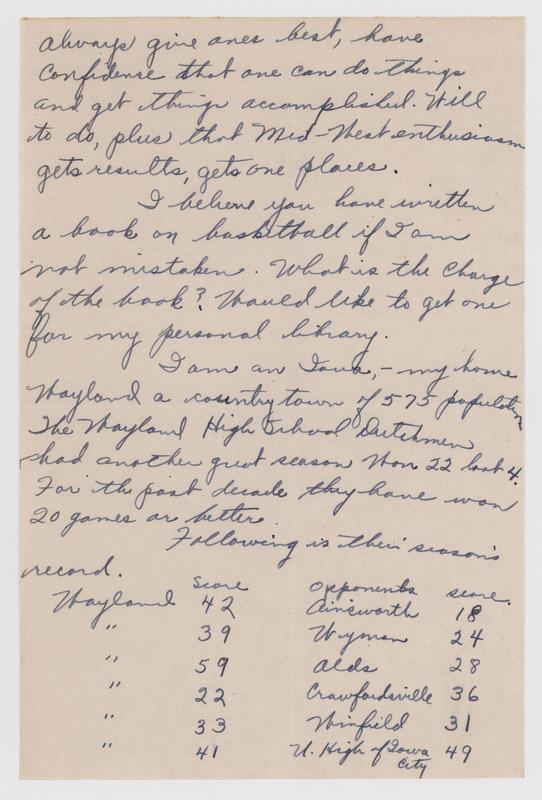 always give ones best, have
Confidense that one can do things
and get things accomplished. Will
to do, plus that Mid-West enthusiasm
gets results, gets one places.
I believe you have written
a book on basketball if I am
not mistaken. What is the Charge
of the book? Would like to get one
for my personal library.
I am an Iowa,- my home
Wayland a country town of 575 population
The Wayland High School Dutchmen
had another great season Won 22 lost 4.
For the past decade they have won
20 games or better.
Following is their season's
record.
Score Opponents score.
Wayland 42 Ainsworth 18
" 39 Wyman 24
" 59 Olds 28
" 22 Crawfordsville 36
" 33 Winfield 31
" 41 U. High of Iowa City 49